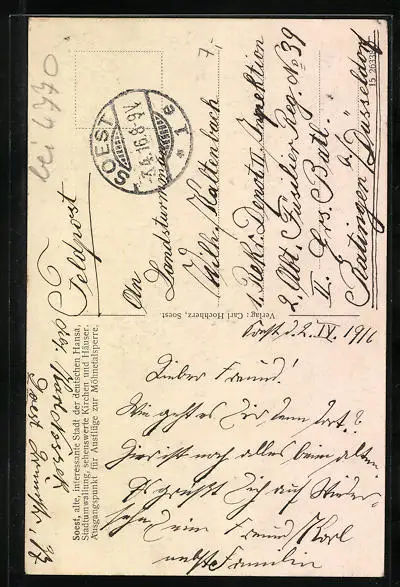 bei 4770
7,-
SOEST
7.4.16.8-9V
* 1 e
Feldpost
An
Landsturmmann
Wilh. Kaltenbach
1. Rekr. Depot II. Inspektion
2. Abt. Füsilier Reg. № 39
II. Ers. Batl.
Ratingen b/ Düsseldorf
15 26334
Verlag: Carl Hochherz, Soest
Soest, alte, interessante Stadt der deutschen Hansa,
Stadtumwallung, sehenswerte Kirchen und Häuser.
Ausgangspunkt für Ausflüge zur Möhnetalsperre.
Soest
Soest d. 2. IV. 1916
Lieber Freund!
Wie geht es Dir denn dort?
Hier ist noch alles beim alten.
Es grüßt Dich auf Wieder-
sehen Dein Freund Karl
nebst Familie